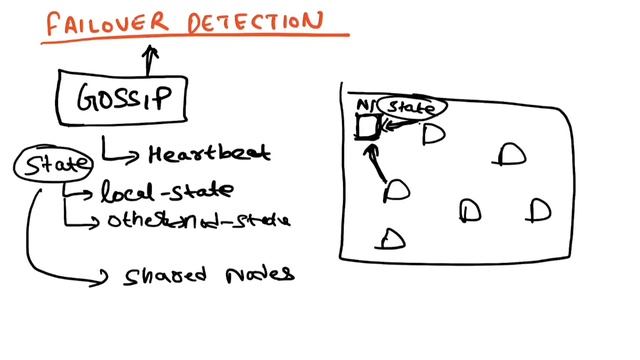 FAILOVER DETECTION
GOSSIP
Heartbeat
State
local-state
shared Nodes
N1
State